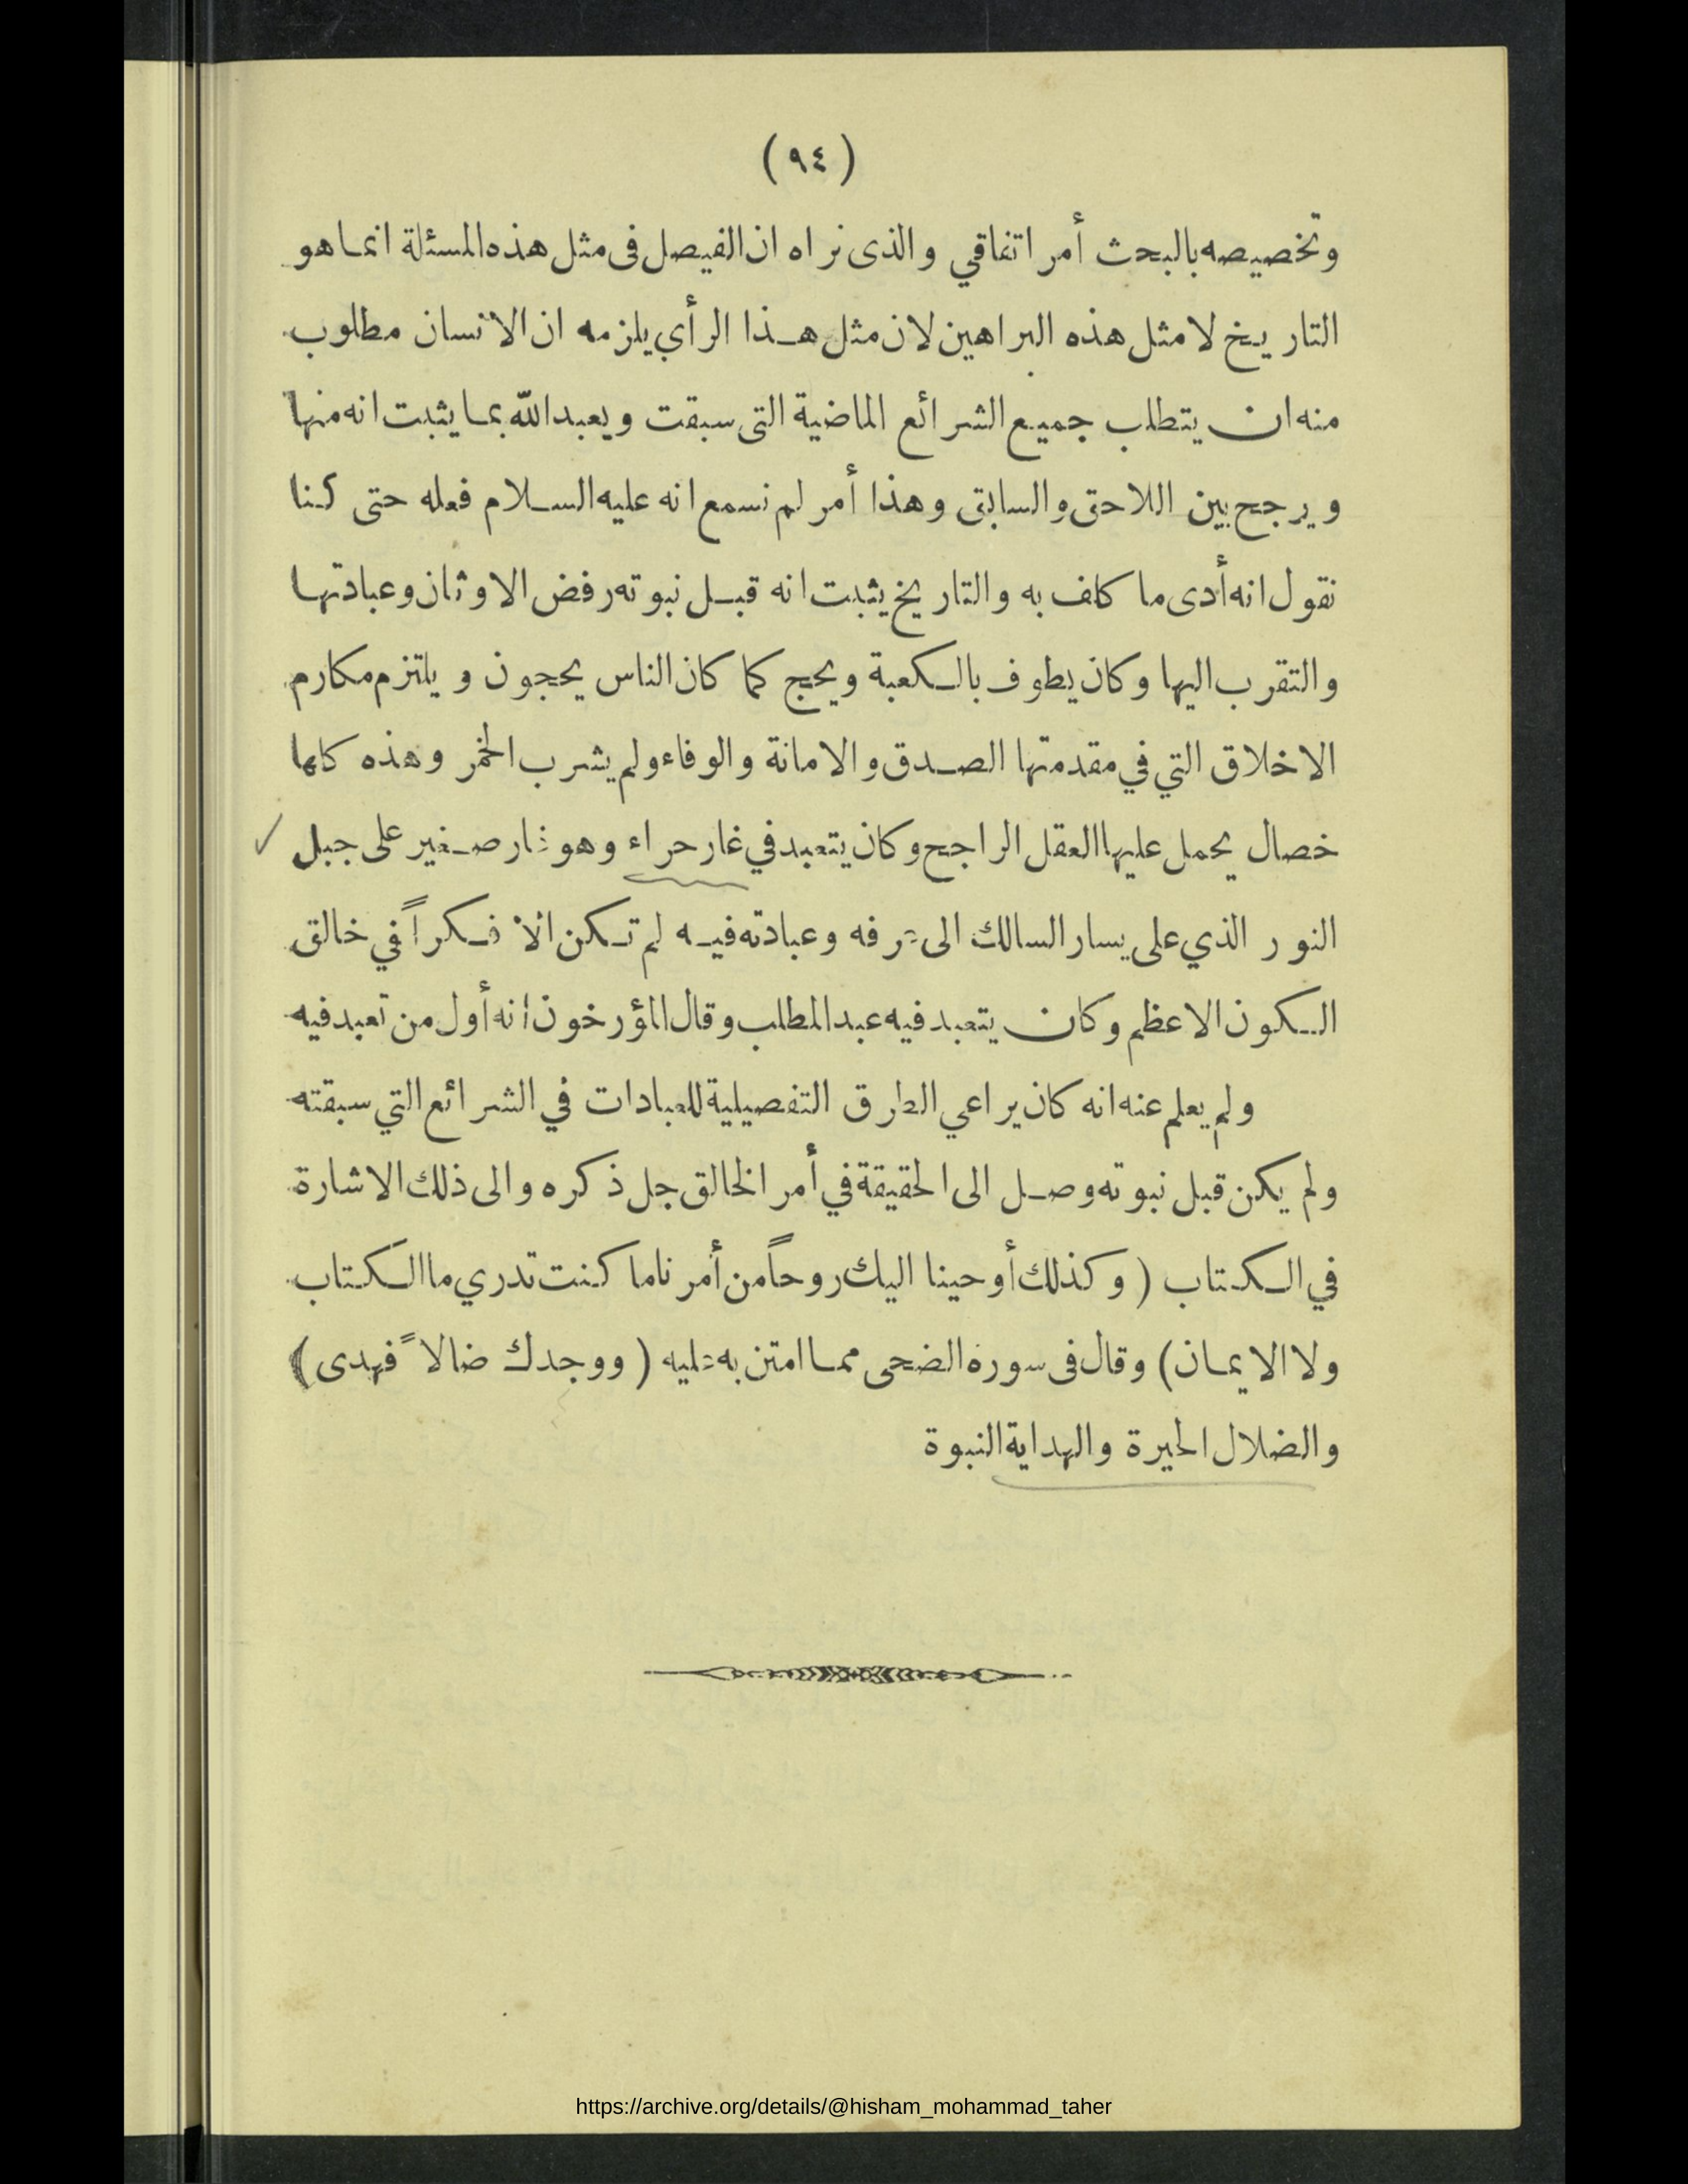 (٩٤)
وتخصيصه بالبحث أمر اتفاقي والذى نراه ان الفيصل فى مثل هذه المسئلة انما هو
التاريخ لا مثل هذه البراهين لان مثل هذا الرأي يلزمه ان الانسان مطلوب
منه ان يتطلب جميع الشرائع الماضية التى سبقت ويعبد الله بما يثبت انه منها
ويرجح بين اللاحق والسابق وهذا أمر لم نسمع انه عليه السلام فعله حتى كنا
نقول انه أدى ما كلف به والتاريخ يثبت انه قبل نبوته رفض الاوثان وعبادتها
والتقرب اليها وكان يطوف بالكعبة ويحج كما كان الناس يحجون ويلتزم مكارم
الاخلاق التي في مقدمتها الصدق والامانة والوفاء ولم يشرب الخمر وهذه كلها
خصال يحمل عليها العقل الراجح وكان يتعبد في غار حراء وهو غار صغير على جبل
النور الذي على يسار السالك الى عرفه وعبادته فيه لم تكن الا فكراً في خالق
الكون الاعظم وكان يتعبد فيه عبد المطلب وقال المؤرخون انه أول من تعبد فيه
ولم يعلم عنه انه كان يراعي الطرق التفصيلية للعبادات في الشرائع التي سبقته
ولم يكن قبل نبوته وصل الى الحقيقة في أمر الخالق جل ذكره والى ذلك الاشارة
في الكتاب (وكذلك أوحينا اليك روحاً من أمرنا ما كنت تدري ما الكتاب
ولا الايمان) وقال فى سورة الضحى مما امتن به عليه (ووجدك ضالاً فهدى)
والضلال الحيرة والهداية النبوة
https://archive.org/details/@hisham_mohammad_taher